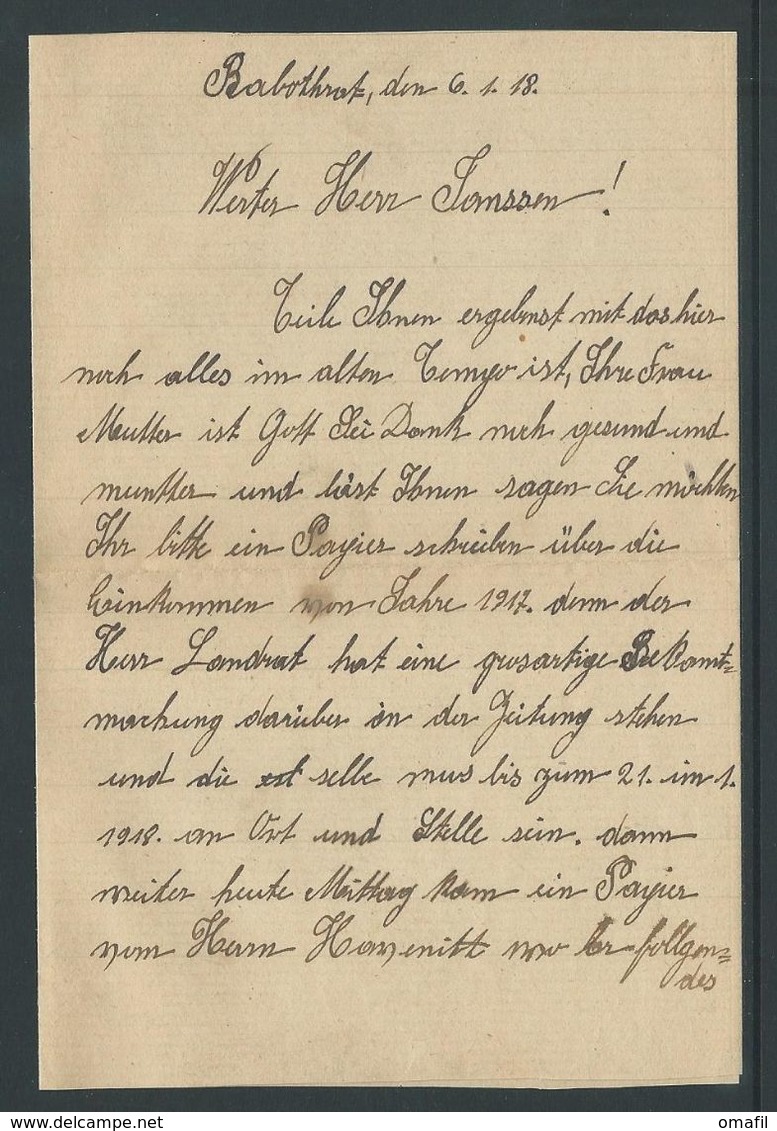 Rabothrat, den 6. 1. 18.
Werter Herr Janssen!
Teile Ihnen ergebenst mit das hier
noch alles im alten Tempo ist, Ihre Frau
Mutter ist Gott Sei Dank noch gesund und
muntter und läst Ihnen sagen Sie möchten
Ihr bitte ein Papier schreiben über die
Einkommen von Jahre 1917. denn der
Herr Landrat hat eine grosartige Bekant=
machung darüber in der Zeitung stehen
und die selbe mus bis zum 21. im 1.
1918. an Ort und Stelle sein. dann
weiter heute Mittag kam ein Papier
vom Herrn Havenitt wo er follgen=
des
omafil